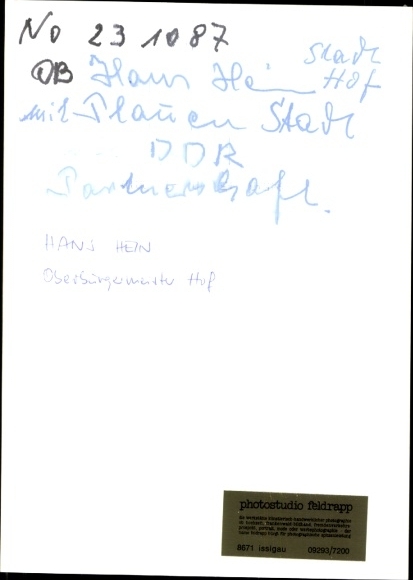 No 23 10 87
OB Hans Hein Stadt Hof
mit Plauen Stadt
DDR
Partnerschaft.
HANS HEIN
Oberbürgermeister Hof
photostudio feldrapp
8671 issigau 09293/7200